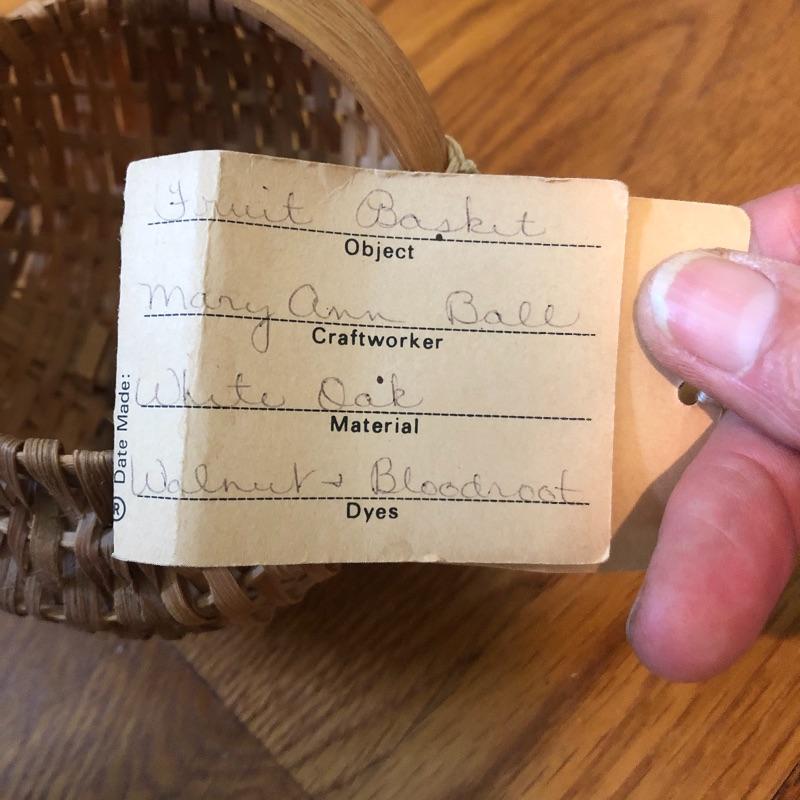 Fruit Basket
Object
Mary Ann Ball
Craftworker
White Oak
Material
Walnut & Bloodroot
Dyes
® Date Made: